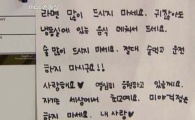 라면 많이 드시지 마세요. 귀찮아도
냉동실에 있는 음식 데워서 드세요.
술 많이 드시지 마세요. 절대 술먹고 운전
하지 마시구요!!
사랑해요♡ 열심히 응원하고 있을게요.
자기는 세상에서 최고예요. 미안해 걱정은
하지 마세요. 내 사랑♥